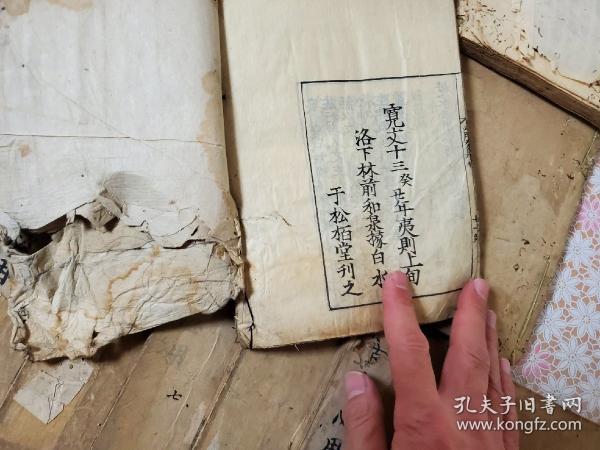 寛文十三癸丑年夷則上旬
洛下林前和泉掾白水
于松栢堂刊之
七
孔夫子旧书网
www.kongfz.com